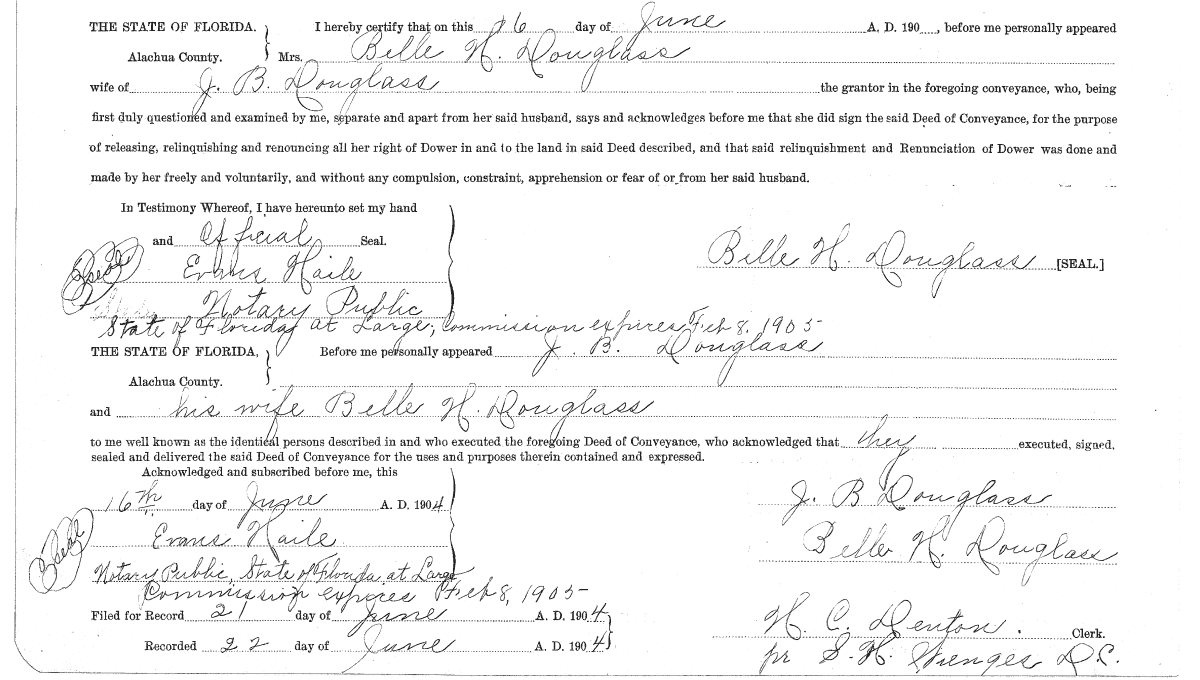 THE STATE OF FLORIDA, } I hereby certify that on this 16 day of June A. D. 190......, before me personally appeared
Alachua County. Mrs. Belle H. Douglass
wife of J. B. Douglass the grantor in the foregoing conveyance, who, being
first duly questioned and examined by me, separate and apart from her said husband, says and acknowledges before me that she did sign the said Deed of Conveyance, for the purpose
of releasing, relinquishing and renouncing all her right of Dower in and to the land in said Deed described, and that said relinquishment and Renunciation of Dower was done and
made by her freely and voluntarily, and without any compulsion, constraint, apprehension or fear of or from her said husband.
In Testimony Whereof, I have hereunto set my hand
and Official Seal.
Belle H. Douglass [SEAL.]
Seal Evans Haile
Notary Public
State of Florida, at Large, Commission expires Feb 8, 1905
THE STATE OF FLORIDA, } Before me personally appeared J. B. Douglass
Alachua County.
and his wife Belle H. Douglass
to me well known as the identical persons described in and who executed the foregoing Deed of Conveyance, who acknowledged that they executed, signed,
sealed and delivered the said Deed of Conveyance for the uses and purposes therein contained and expressed.
Acknowledged and subscribed before me, this
16th day of June A. D. 1904
J. B Douglass
Seal Evans Haile
Belle H. Douglass
Notary Public, State of Florida, at Large
Commission expires Feb 8, 1905
Filed for Record 21 day of June A. D. 1904
H. C. Denton. Clerk.
Recorded 22 day of June A. D. 1904
pr S. H. Wienges D.C.